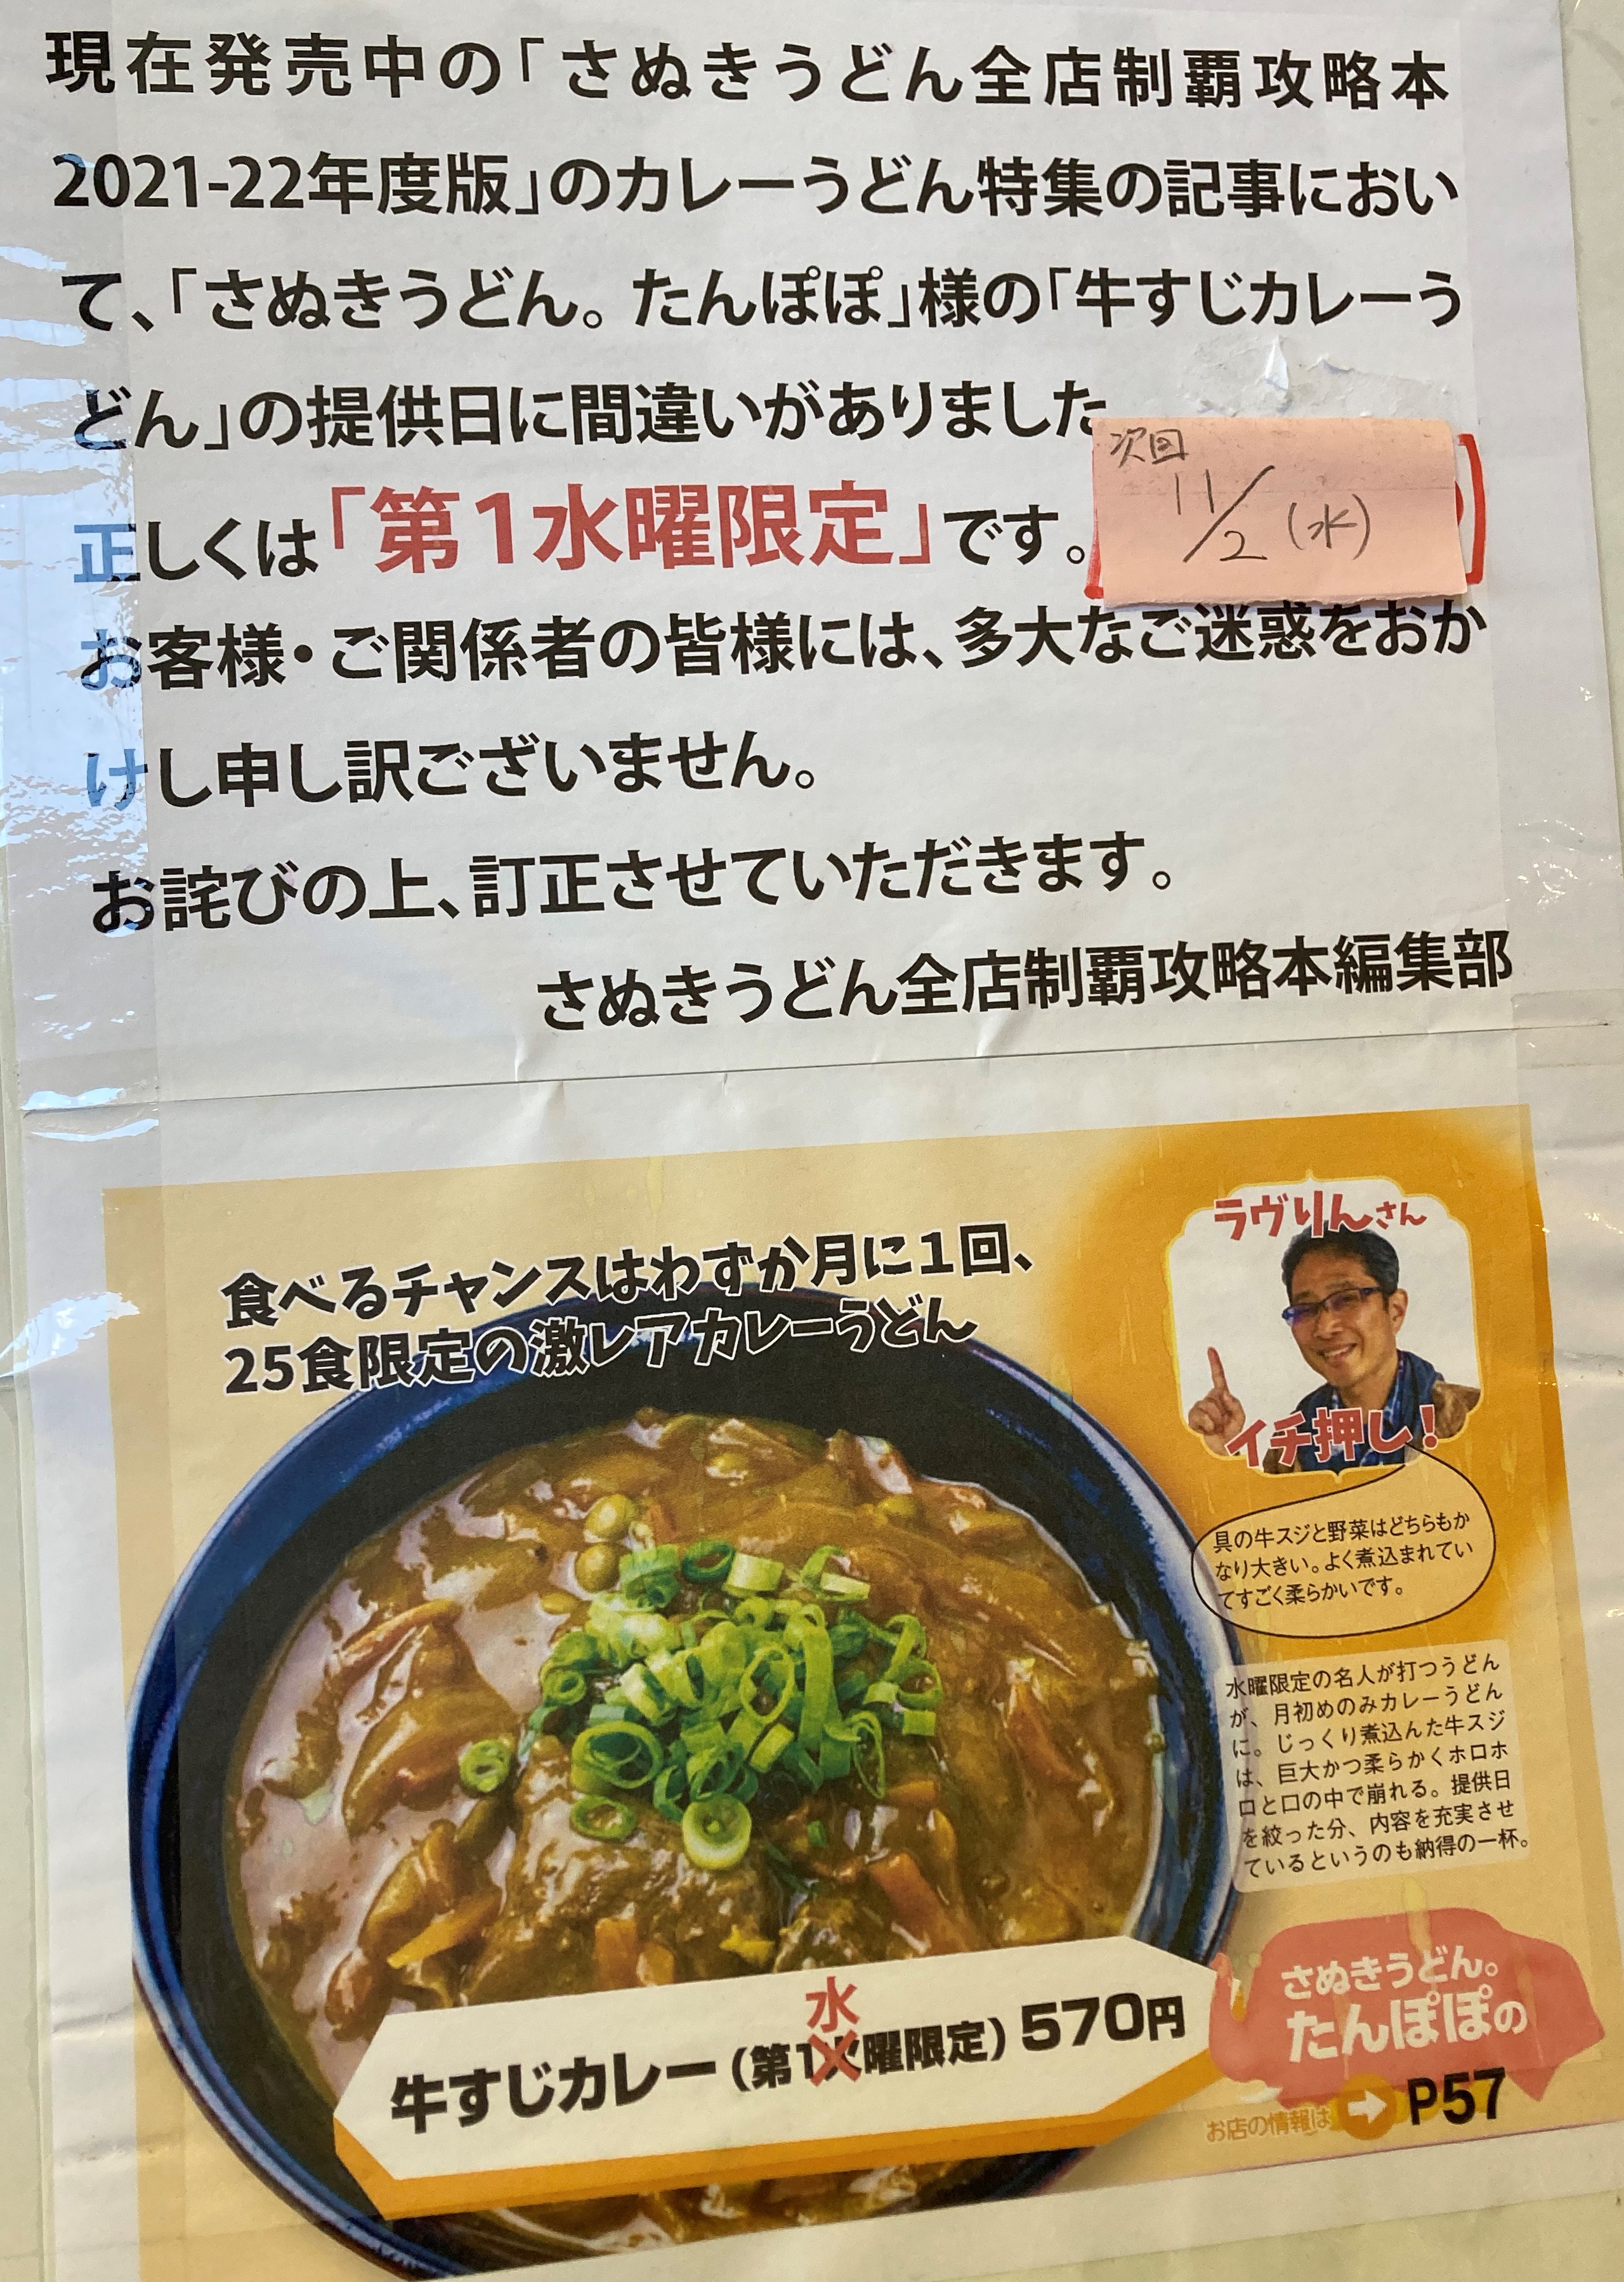 現在発売中の「さぬきうどん全店制覇攻略本
2021-22年度版」のカレーうどん特集の記事におい
て、「さぬきうどん。たんぽぽ」様の「牛すじカレーう
どん」の提供日に間違いがありました
次回
11/2(水)
正しくは「第1水曜限定」です。
お客様・ご関係者の皆様には、多大なご迷惑をおか
けし申し訳ございません。
お詫びの上、訂正させていただきます。
さぬきうどん全店制覇攻略本編集部
食べるチャンスはわずか月に1回、
25食限定の激レアカレーうどん
ラヴりんさん
イチ押し!
具の牛スジと野菜はどちらもか
なり大きい。よく煮込まれてい
てすごく柔らかいです。
水曜限定の名人が打つうどん
が、月初めのみカレーうどん
に。じっくり煮込んだ牛スジ
は、巨大かつ柔らかくホロホ
ロと口の中で崩れる。提供日
を絞った分、内容を充実させ
ているというのも納得の一杯。
水
牛すじカレー(第1火曜限定)570円
さぬきうどん。
たんぽぽの
お店の情報は➡P57